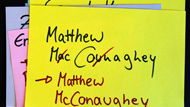 Matthew
Mc Conaghey
→ Matthew
McConaughey